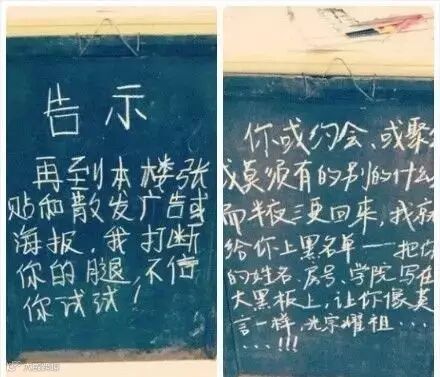 告示
再到本楼张
贴和散发广告或
海报，我打断
你的腿，不信
你试试！
你或约会、或聚
或莫须有的别的什么
而半夜三更回来，我就
给你上黑名单——把你
的姓名、房号、学院写在
大黑板上，让你像莫
言一样，光宗耀祖……
……!!!